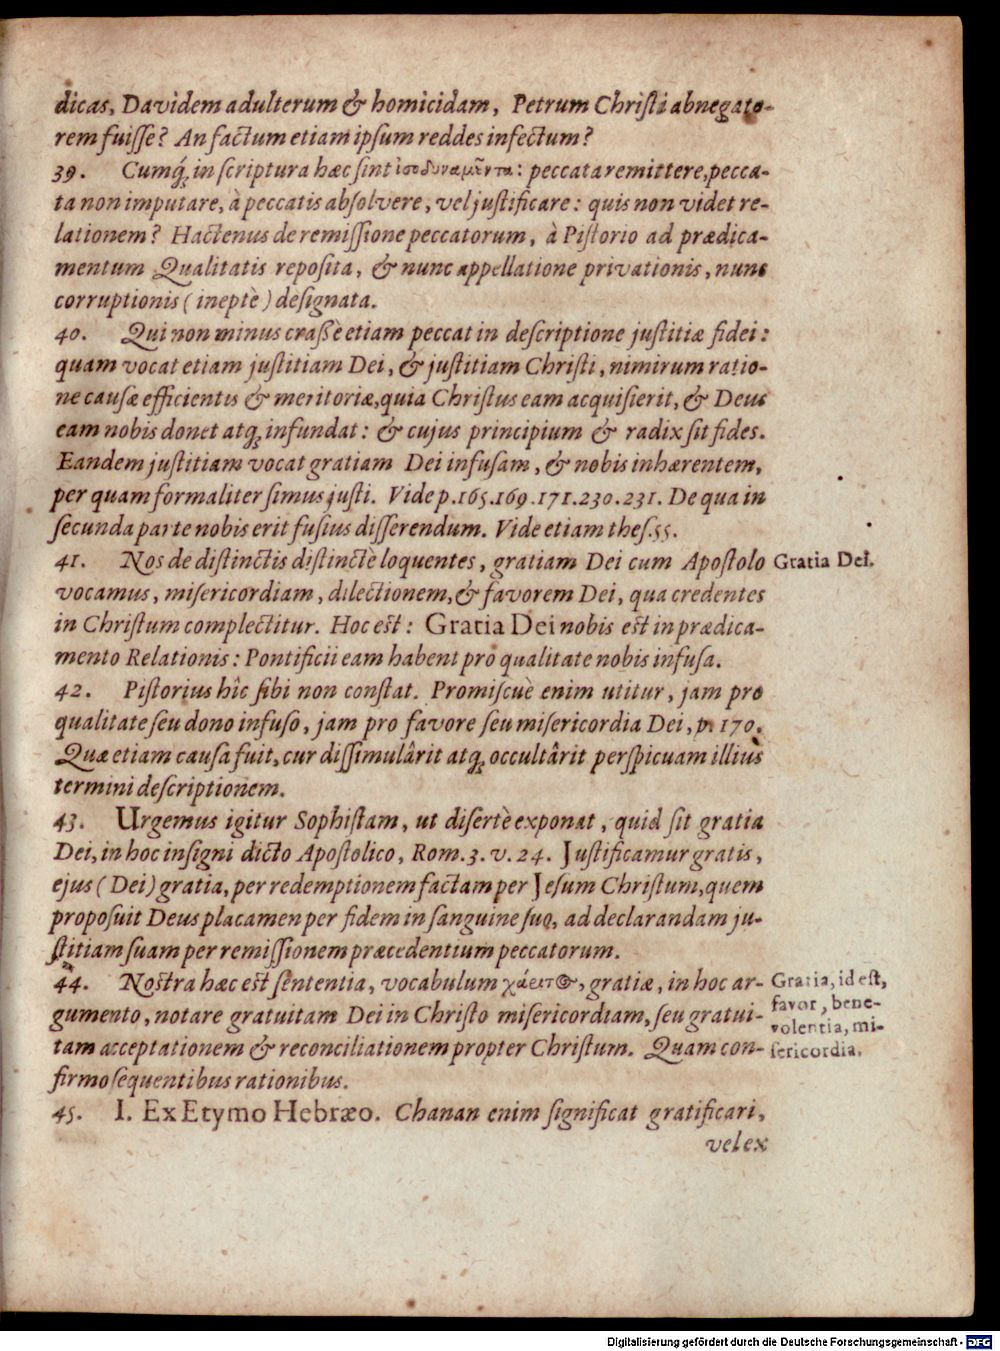 dicas, Davidem adulterum & homicidam, Petrum Christi abnegato-
rem fuisse? An factum etiam ipsum reddes infectum?
39. Cumq́; in scriptura hæc sint ἰσοδυναμοῦντα: peccata remittere, pecca-
ta non imputare, à peccatis absolvere, vel justificare: quis non videt re-
lationem? Hactenus de remissione peccatorum, à Pistorio ad prædica-
mentum Qualitatis reposita, & nunc appellatione privationis, nunc
corruptionis (ineptè) designata.
40. Qui non minus crassè etiam peccat in descriptione justitiæ fidei:
quam vocat etiam justitiam Dei, & justitiam Christi, nimirum ratio-
ne causæ efficientis & meritoriæ, quia Christus eam acquisierit, & Deus
eam nobis donet atq; infundat: & cujus principium & radix sit fides.
Eandem justitiam vocat gratiam Dei infusam, & nobis inhærentem,
per quam formaliter simus justi. Vide p.165.169.171.230.231. De qua in
secunda parte nobis erit fusius disserendum. Vide etiam thes.55.
41. Nos de distinctis distinctè loquentes, gratiam Dei cum Apostolo
Gratia Dei.
vocamus, misericordiam, dilectionem, & favorem Dei, qua credentes
in Christum complectitur. Hoc est: Gratia Dei nobis est in prædica-
mento Relationis: Pontificii eam habent pro qualitate nobis infusa.
42. Pistorius hîc sibi non constat. Promiscuè enim utitur, jam pro
qualitate seu dono infuso, jam pro favore seu misericordia Dei, p. 170.
Quæ etiam causa fuit, cur dissimulârit atq; occultârit perspicuam illius
termini descriptionem.
43. Urgemus igitur Sophistam, ut disertè exponat, quid sit gratia
Dei, in hoc insigni dicto Apostolico, Rom. 3. v. 24. Justificamur gratis,
ejus (Dei) gratia, per redemptionem factam per Jesum Christum, quem
proposuit Deus placamen per fidem in sanguine suo, ad declarandam ju-
stitiam suam per remissionem præcedentium peccatorum.
44. Nostra hæc est sententia, vocabulum χάριτος, gratiæ, in hoc ar-
gumento, notare gratuitam Dei in Christo misericordiam, seu gratui-
tam acceptationem & reconciliationem propter Christum. Quam con-
firmo sequentibus rationibus.
Gratia, id est,
favor, bene-
volentia, mi-
sericordia.
45. I. Ex Etymo Hebræo. Chanan enim significat gratificari,
vel ex
Digitalisierung gefördert durch die Deutsche Forschungsgemeinschaft - DFG